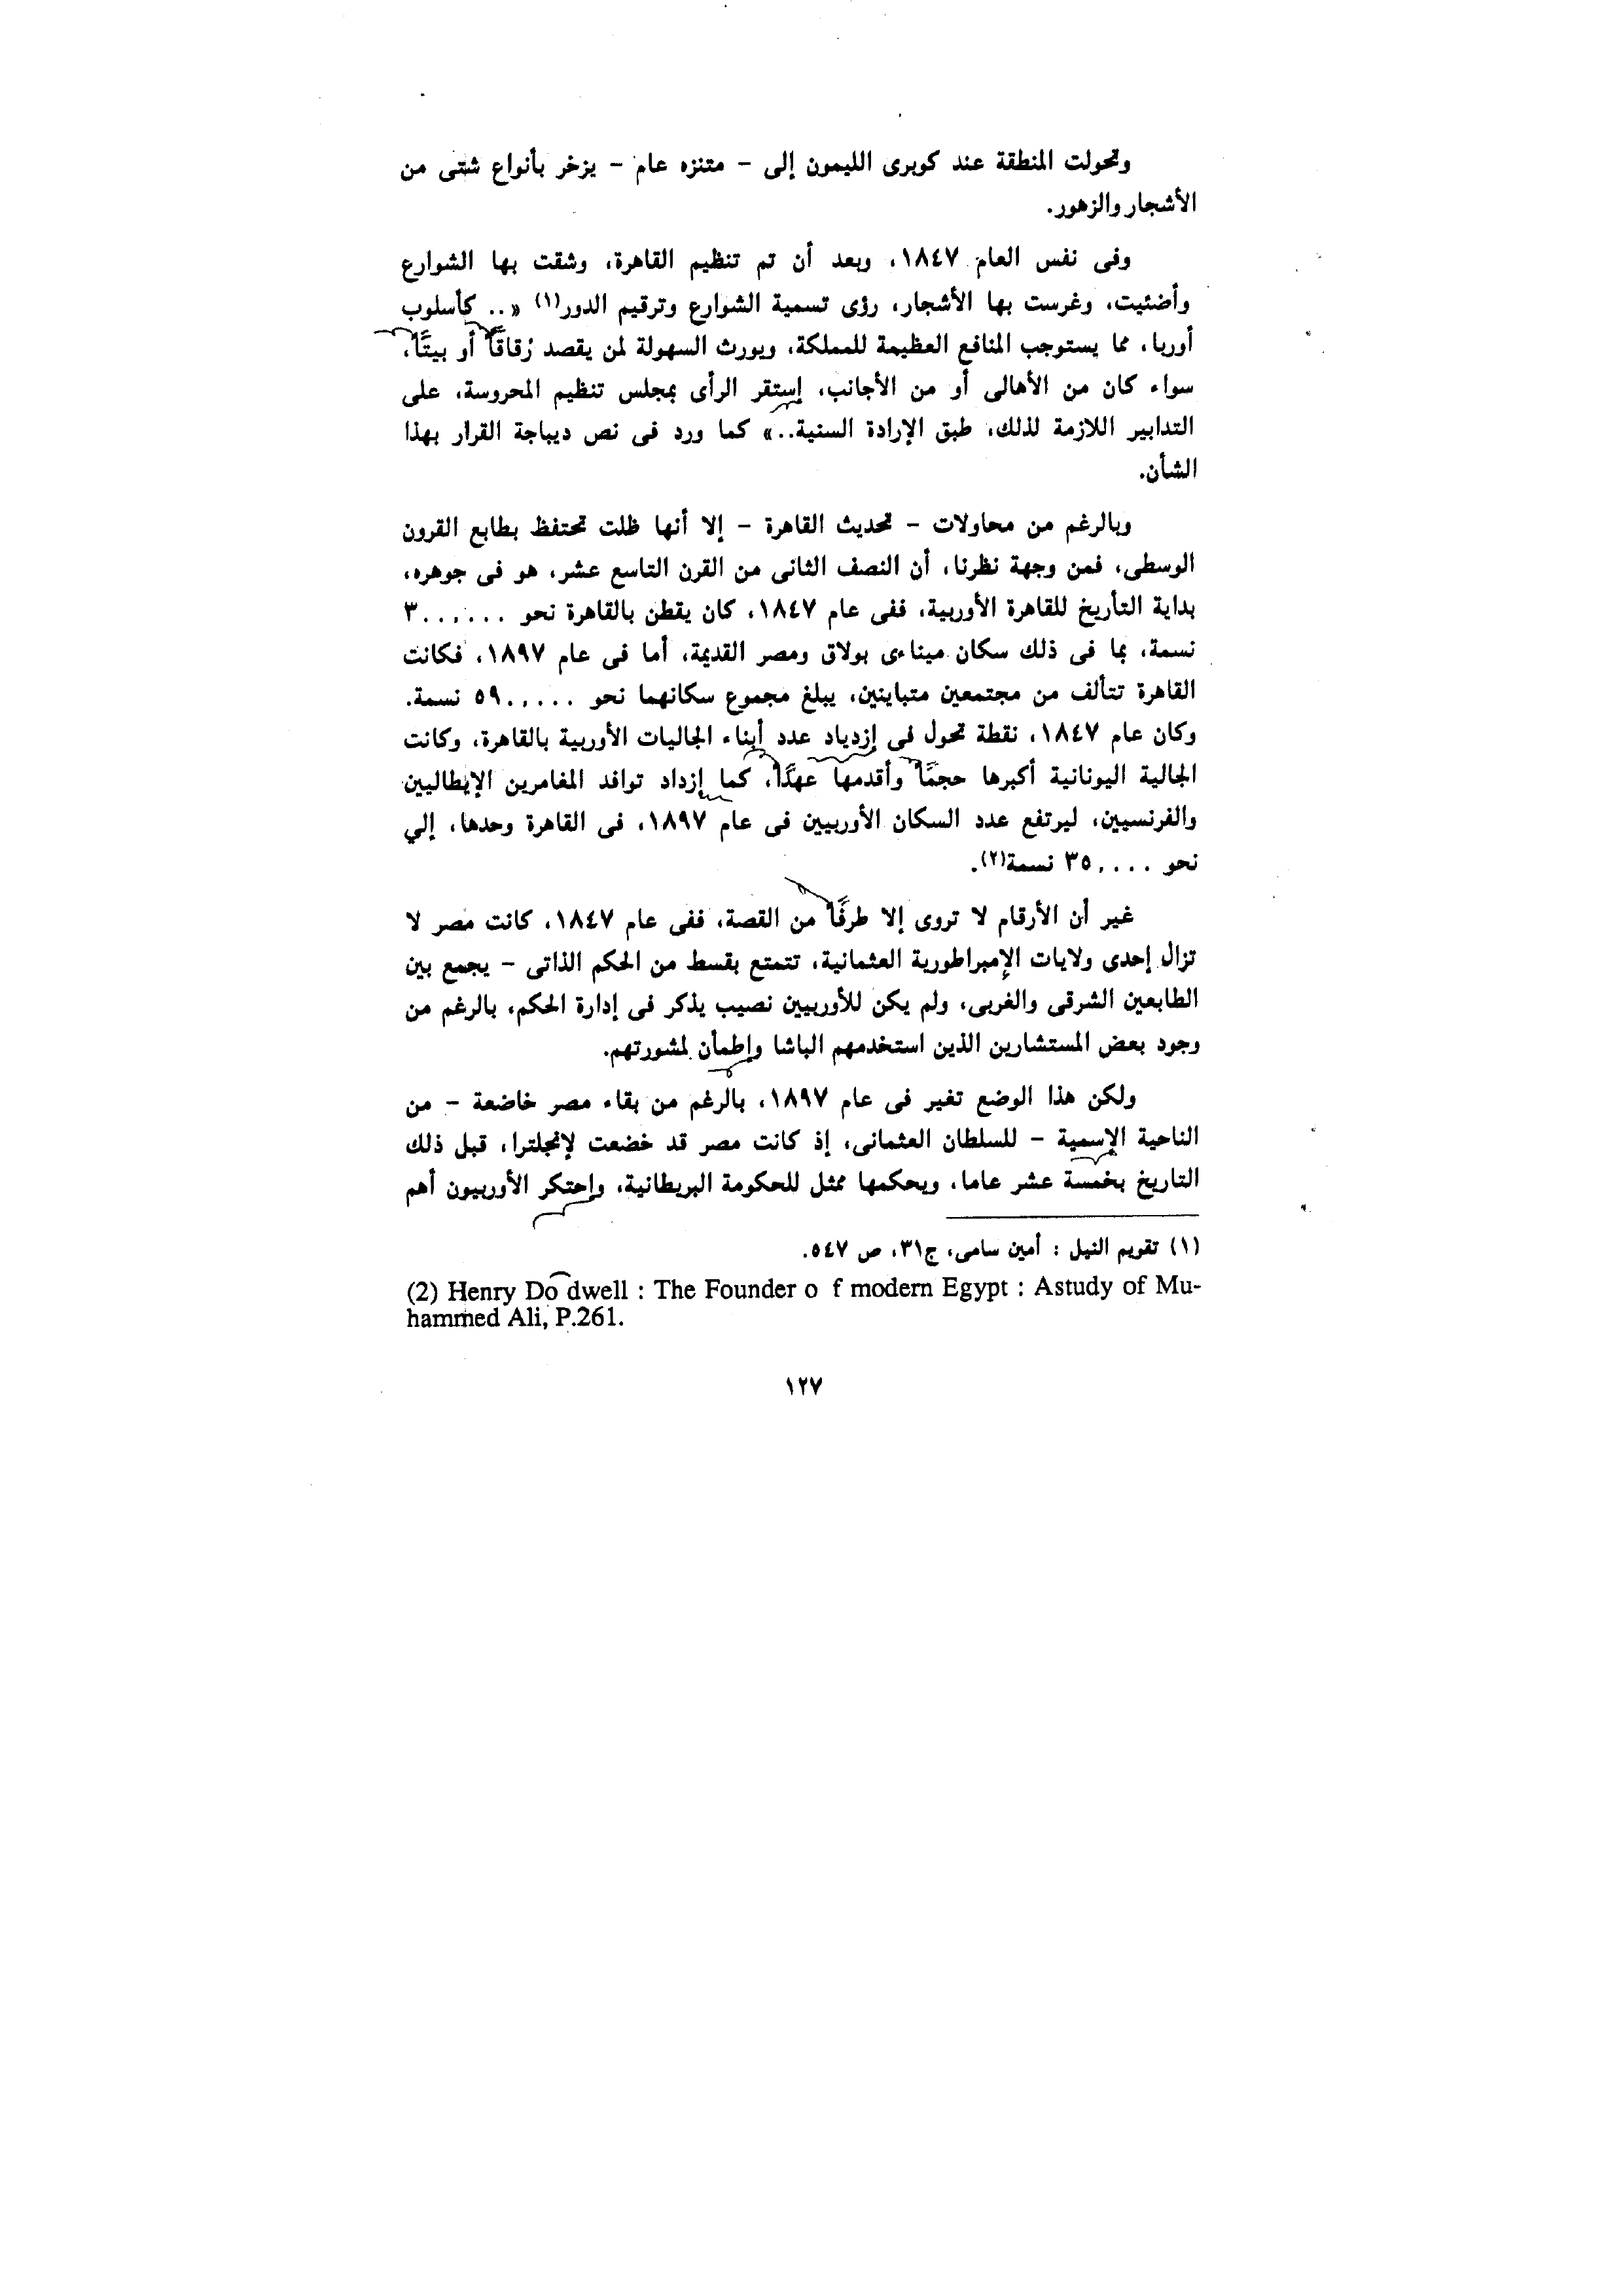 وتحولت المنطقة عند كوبرى الليمون إلى - متنزه عام - يزخر بأنواع شتى من
الأشجار والزهور.
وفى نفس العام ١٨٤٧، وبعد أن تم تنظيم القاهرة، وشقت بها الشوارع
وأضئيت، وغرست بها الأشجار، رؤى تسمية الشوارع وترقيم الدور(١) «.. كأسلوب
أوربا، مما يستوجب المنافع العظيمة للمملكة، ويورث السهولة لمن يقصد زقاقًا أو بيتًا،
سواء كان من الأهالى أو من الأجانب، إستقر الرأى بمجلس تنظيم المحروسة، على
التدابير اللازمة لذلك، طبق الإرادة السنية..» كما ورد فى نص ديباجة القرار بهذا
الشأن.
وبالرغم من محاولات - تحديث القاهرة - إلا أنها ظلت تحتفظ بطابع القرون
الوسطى، فمن وجهة نظرنا، أن النصف الثانى من القرن التاسع عشر، هو فى جوهره،
بداية التأريخ للقاهرة الأوربية، ففى عام ١٨٤٧، كان يقطن بالقاهرة نحو ٣٠٠,٠٠٠
نسمة، بما فى ذلك سكان ميناءى بولاق ومصر القديمة، أما فى عام ١٨٩٧، فكانت
القاهرة تتألف من مجتمعين متباينين، يبلغ مجموع سكانهما نحو ٥٩٠,٠٠٠ نسمة.
وكان عام ١٨٤٧، نقطة تحول فى إزدياد عدد أبناء الجاليات الأوربية بالقاهرة، وكانت
الجالية اليونانية أكبرها حجمًا وأقدمها عهدًا، كما إزداد توافد المغامرين الإيطاليين
والفرنسيين، ليرتفع عدد السكان الأوربيين فى عام ١٨٩٧، فى القاهرة وحدها، إلي
نحو ٣٥,٠٠٠ نسمة(٢).
غير أن الأرقام لا تروى إلا طرفًا من القصة، ففى عام ١٨٤٧، كانت مصر لا
تزال إحدى ولايات الإمبراطورية العثمانية، تتمتع بقسط من الحكم الذاتى - يجمع بين
الطابعين الشرقى والغربى، ولم يكن للأوربيين نصيب يذكر فى إدارة الحكم، بالرغم من
وجود بعض المستشارين الذين استخدمهم الباشا وإطمأن لمشورتهم.
ولكن هذا الوضع تغير فى عام ١٨٩٧، بالرغم من بقاء مصر خاضعة - من
الناحية الإسمية - للسلطان العثمانى، إذ كانت مصر قد خضعت لإنجلترا، قبل ذلك
التاريخ بخمسة عشر عاما، ويحكمها ممثل للحكومة البريطانية، وإحتكر الأوربيون أهم
(١) تقويم النيل : أمين سامى، ج٣١، ص ٥٤٧.
(2) Henry Do dwell : The Founder o f modern Egypt : Astudy of Mu-
hammed Ali, P.261.
١٢٧